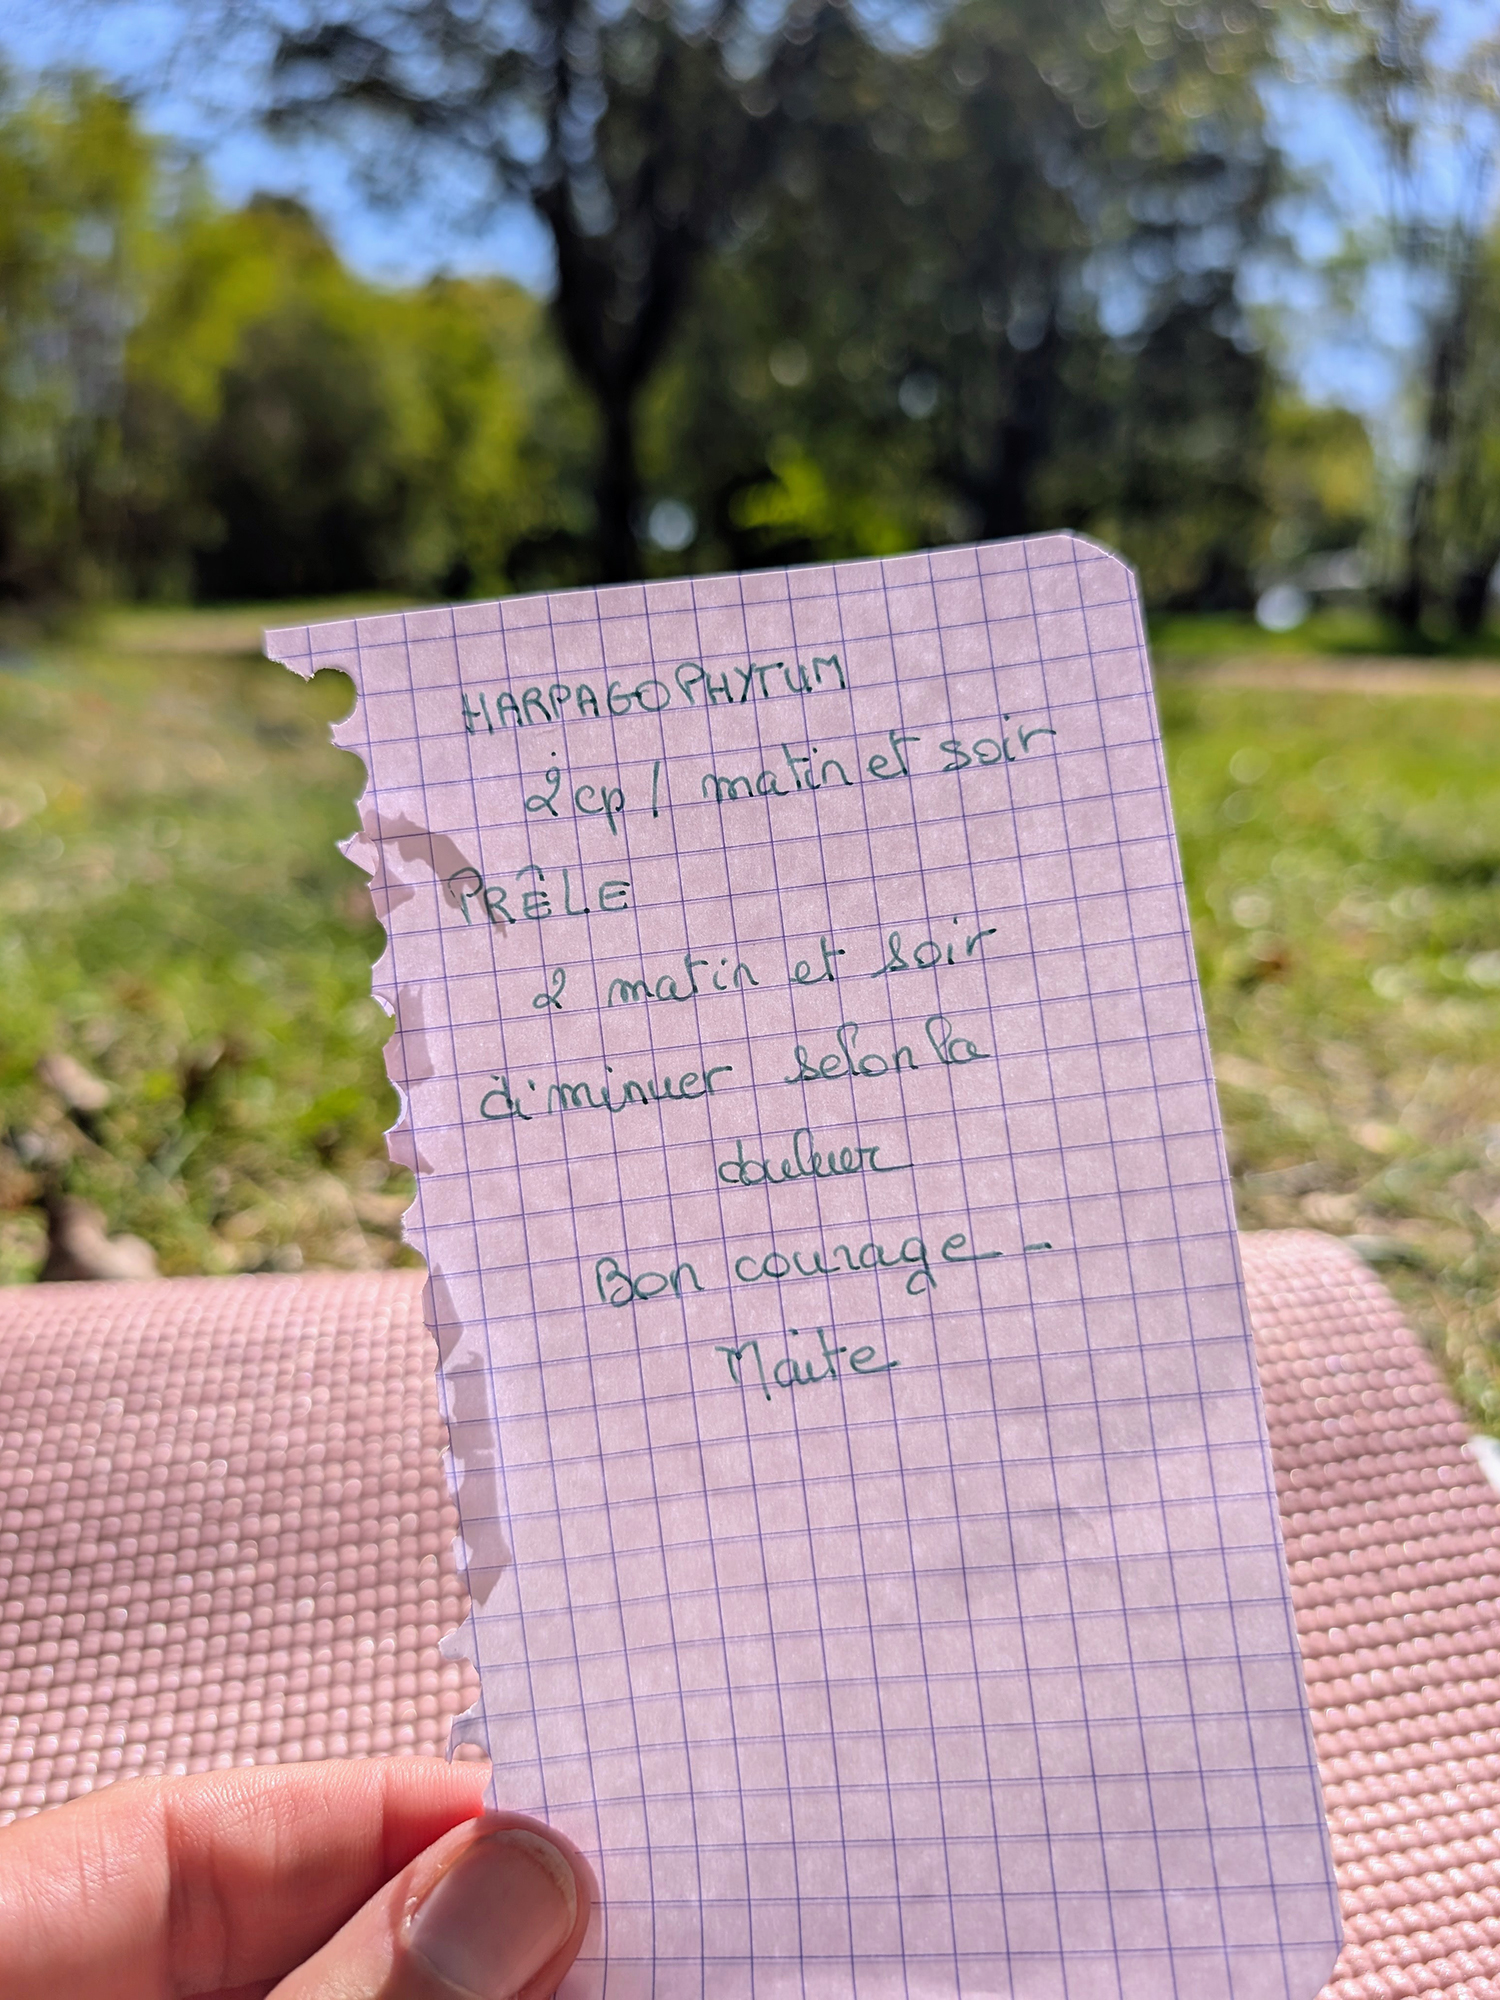 HARPAGOPHYTUM
2 cp / matin et soir
PRÊLE
2 matin et soir
diminuer selon la
douleur
Bon courage -
Maite